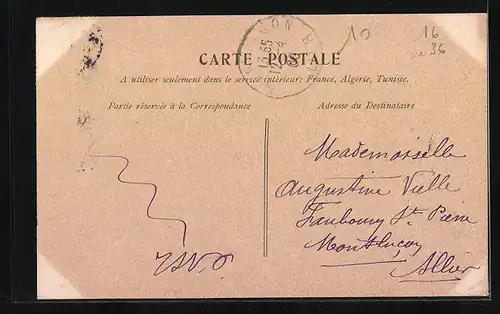 10
16
ou 36
CARTE POSTALE
A utiliser seulement dans le service intérieur: France, Algérie, Tunisie.
Partie réservée à la Correspondance
Adresse du Destinataire
Mademoiselle
Augustine Vielle
Faubourg St. Pierre
Montluçon
Allier
TSVP.